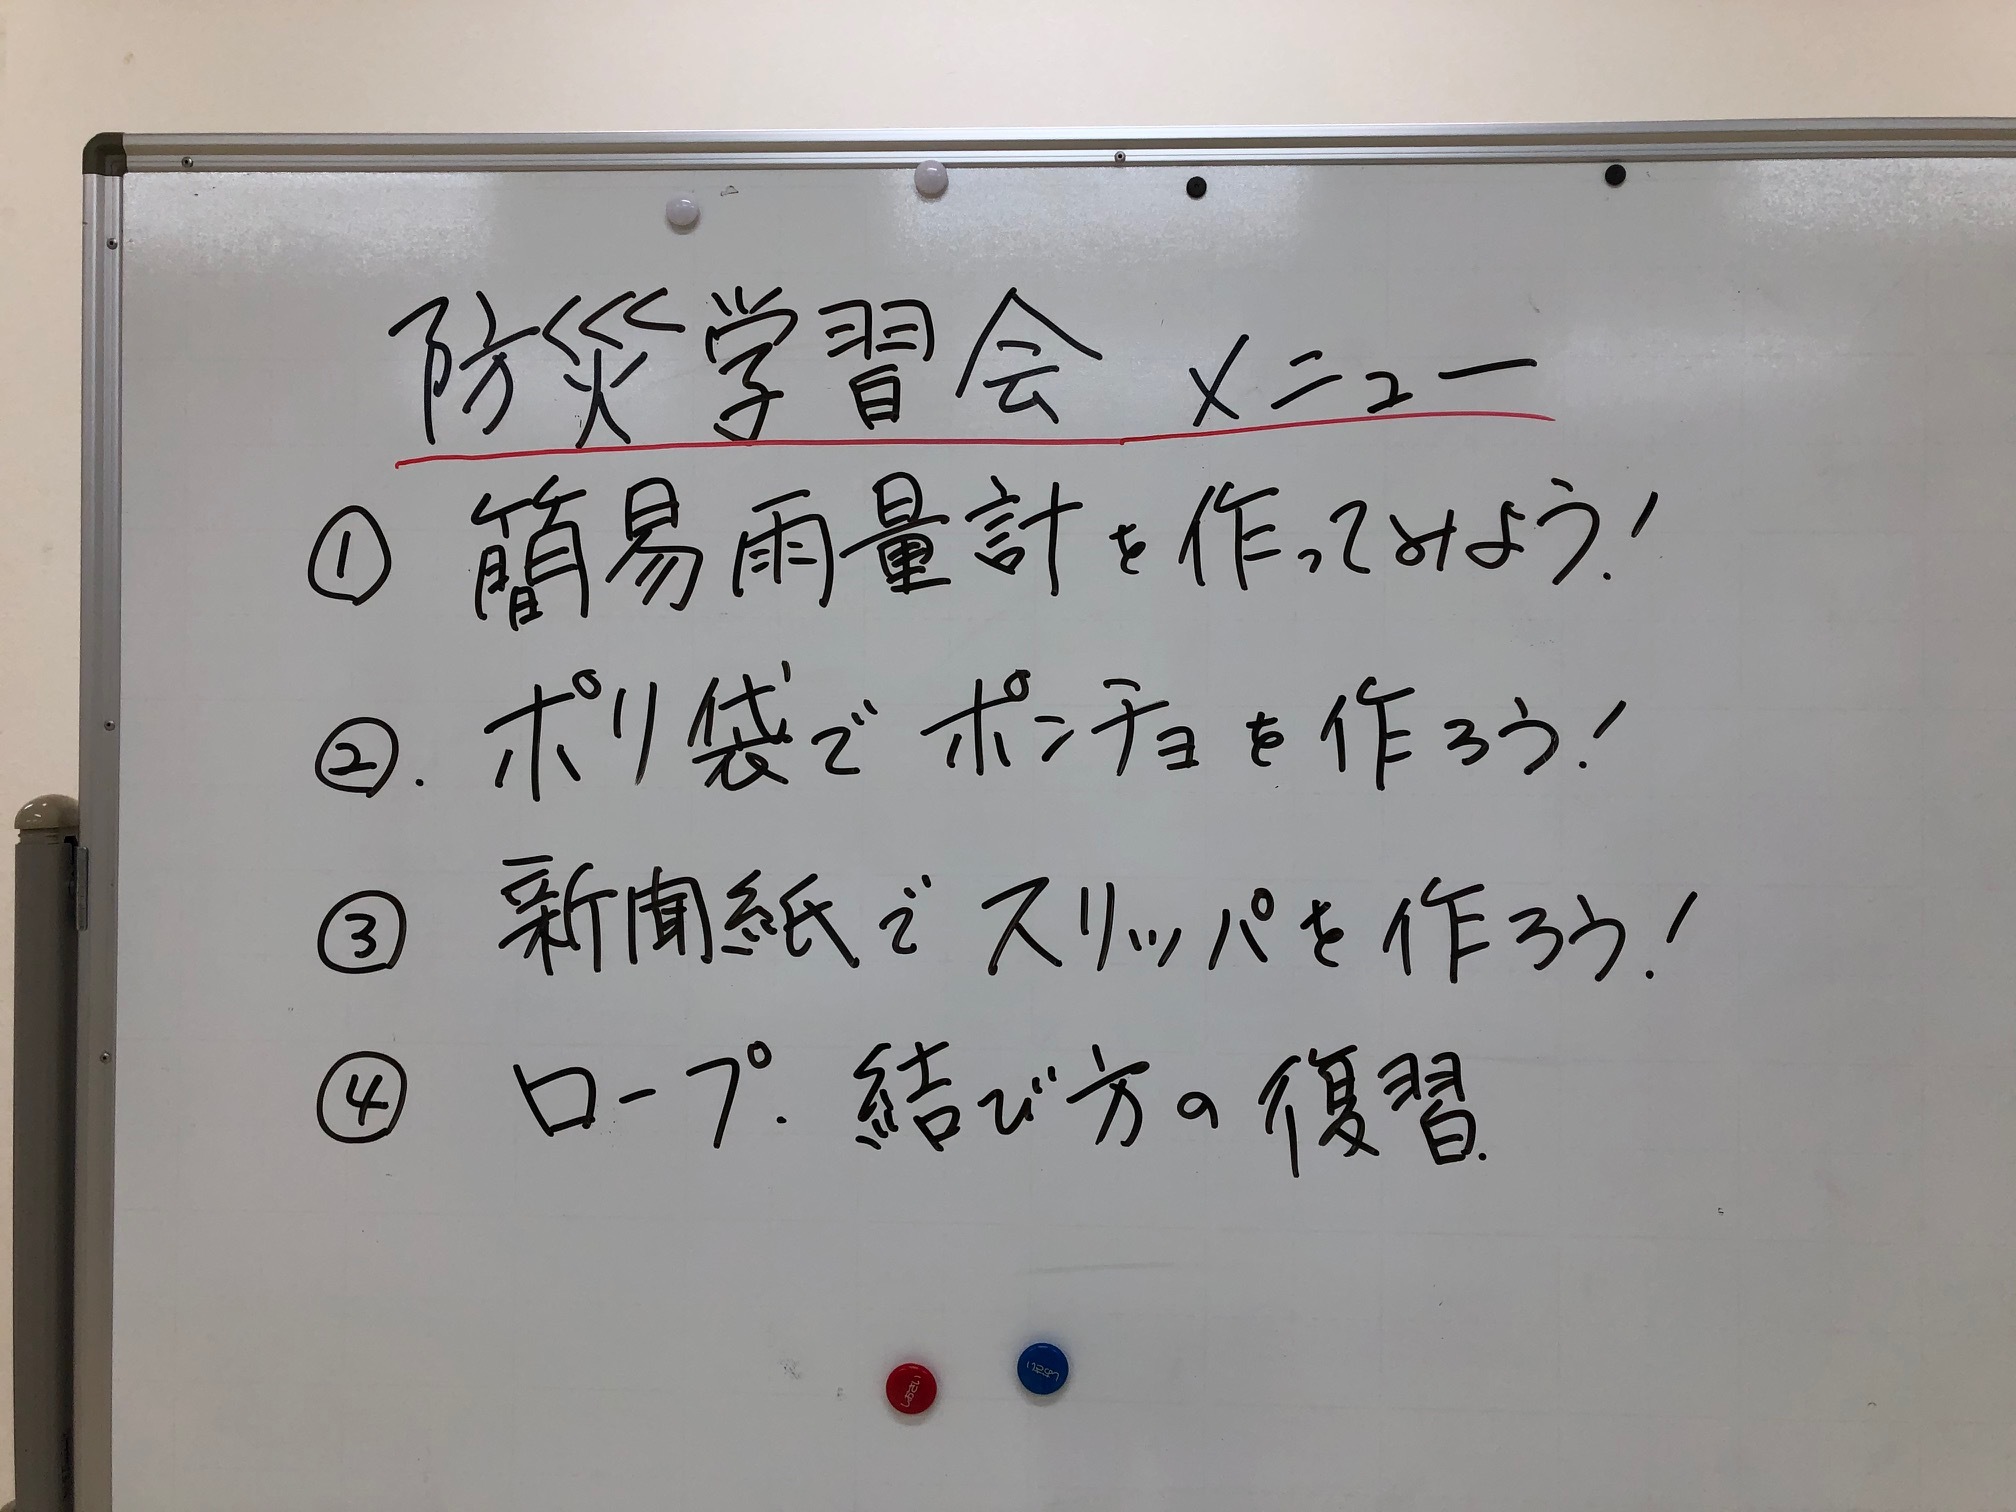 防災学習会 メニュー
① 簡易雨量計を作ってみよう!
②. ポリ袋でポンチョを作ろう!
③ 新聞紙でスリッパを作ろう!
④ ロープ.結び方の復習.